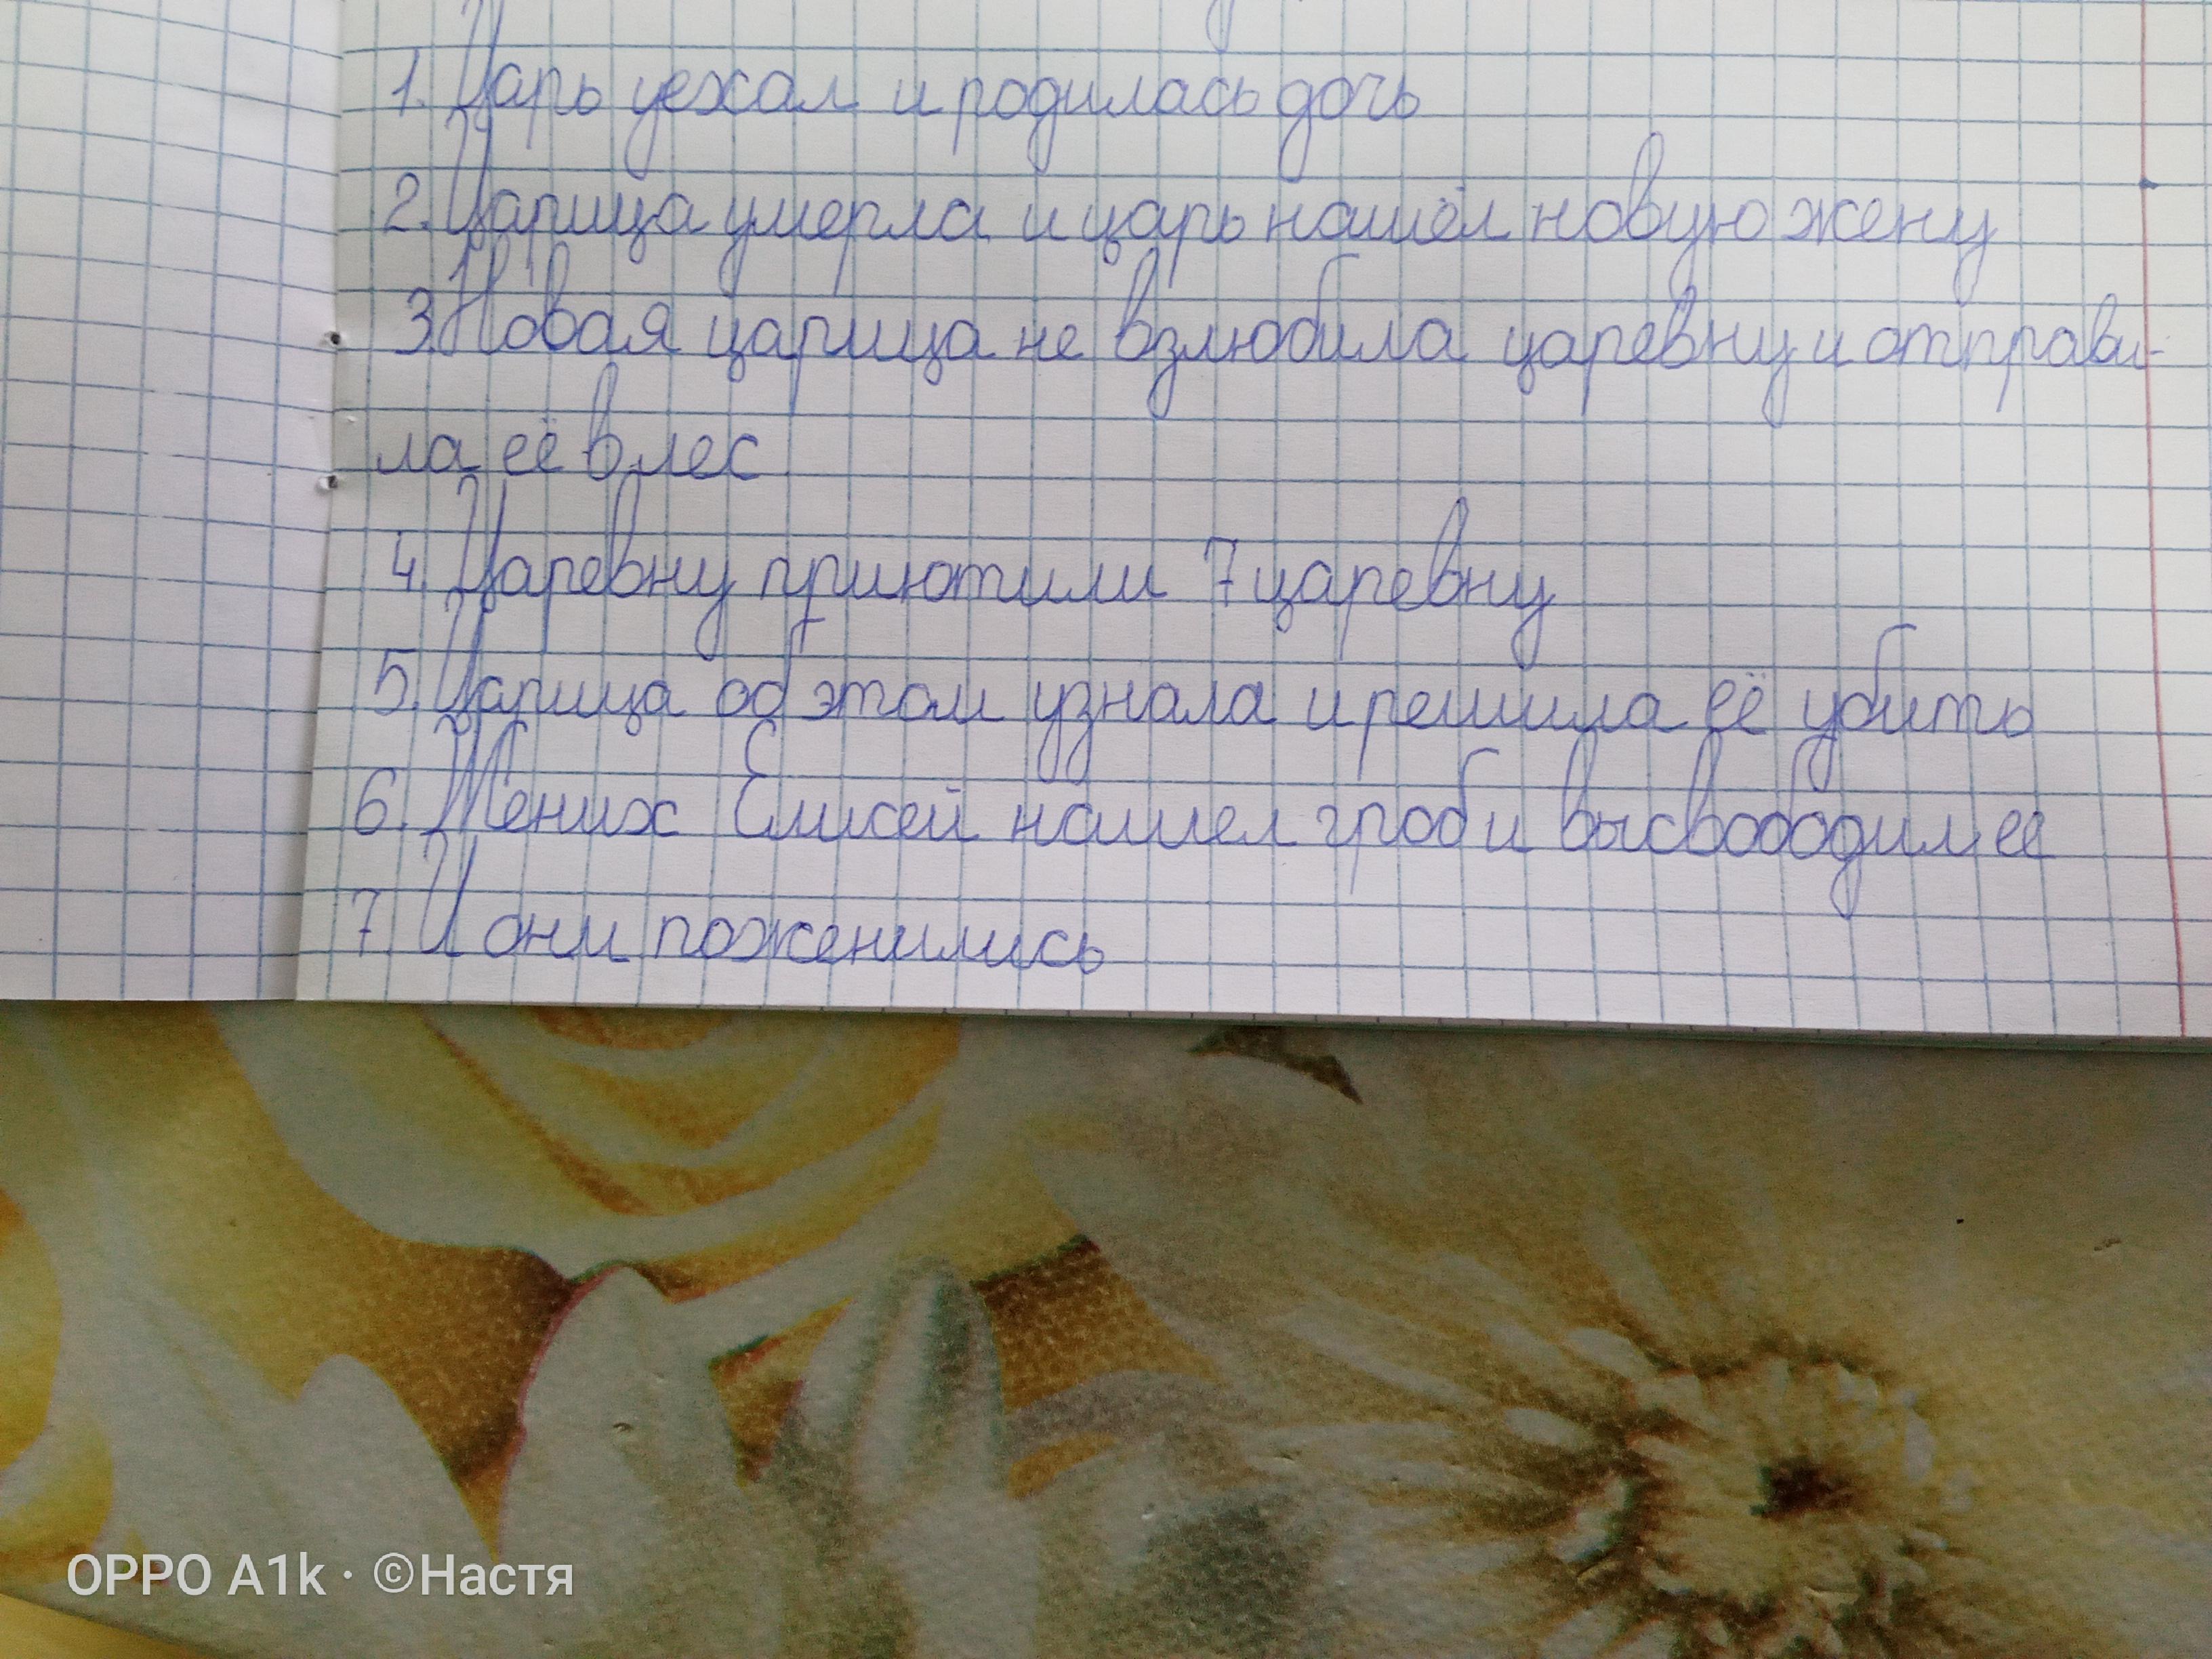 1. Царь уехал и родилась дочь
2. Царица умерла и царь нашёл новую жену
3. Новая царица не взлюбила царевну и отправи-
ла её в лес
4. Царевну приютили 7 царевну
5. Царица об этом узнала и решила её убить
6. Жених Елисей нашел гроб и высвободил ее
7. И они поженились
OPPO A1k · ©Настя